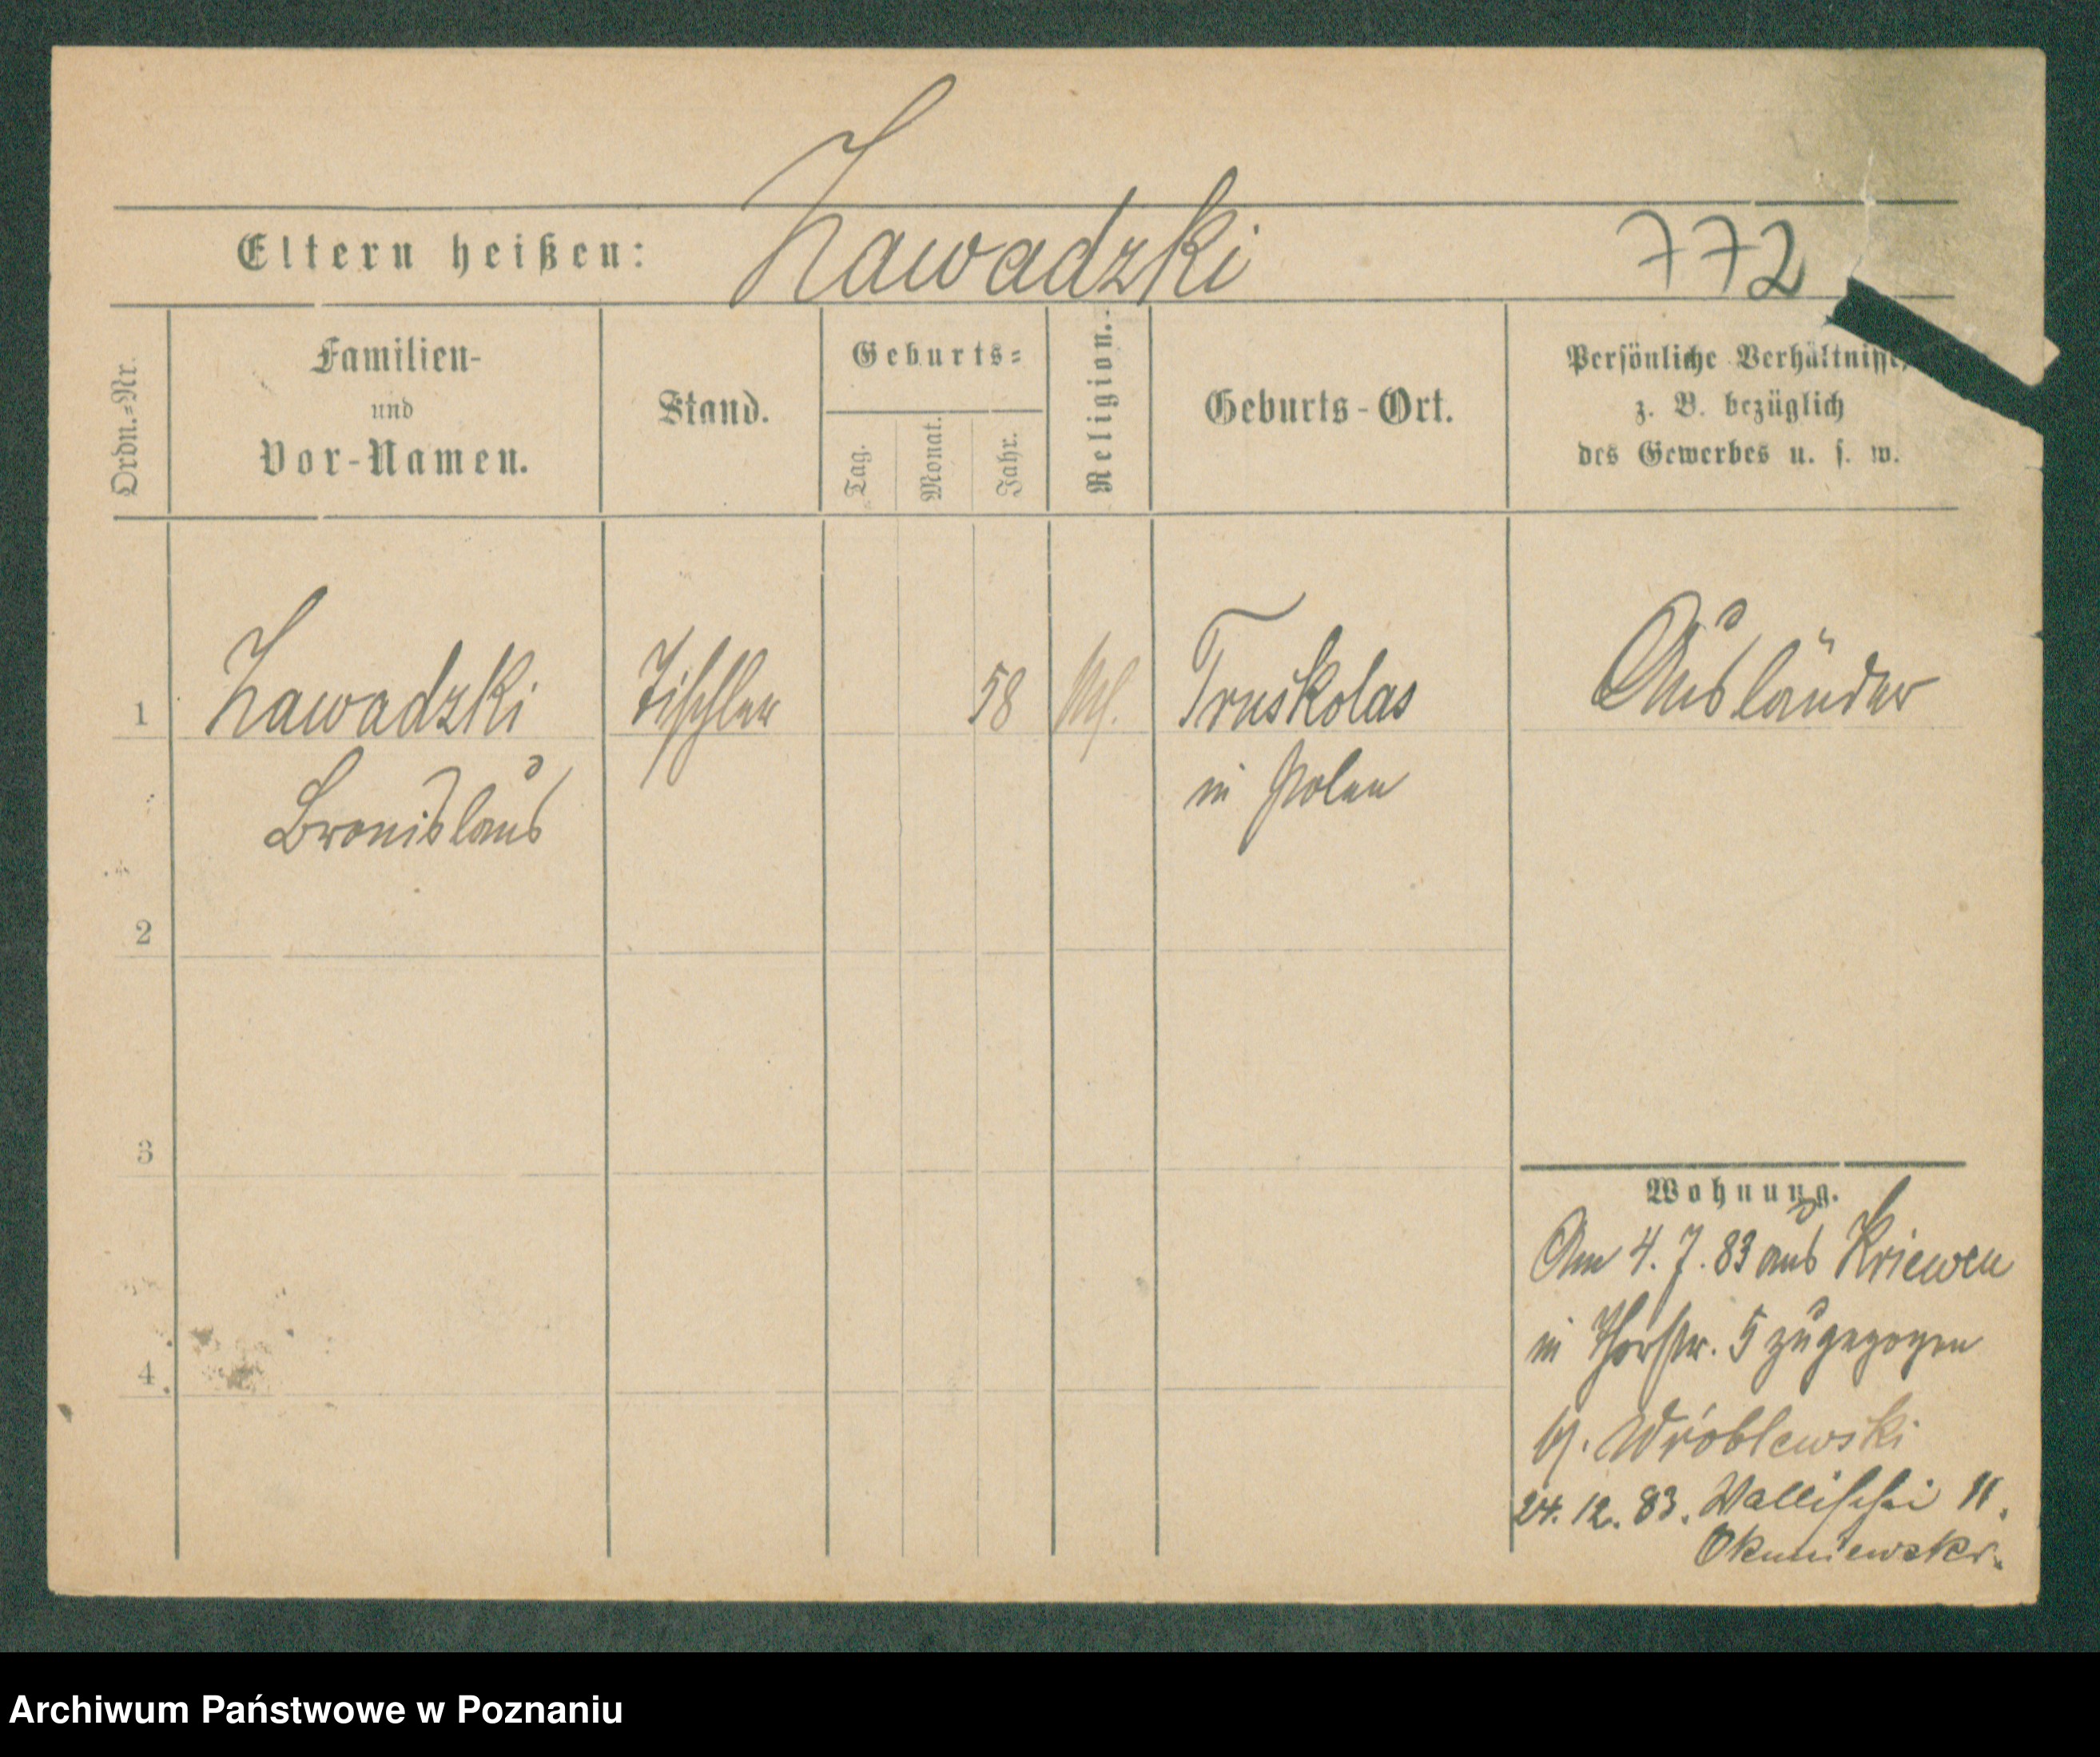 Eltern heißen: Zawadzki 772
Ordn.=Nr.
Familien-
und
Vor-Namen.
Stand.
Geburts=
Tag.
Monat.
Jahr.
Religion.
Geburts-Ort.
Persönliche Verhältnisse,
z. B. bezüglich
des Gewerbes u. s. w.
1 Zawadzki Tischler 58 Truskolas Ausländer
Bronislaus in Polen
2
3
4
Wohnung.
Am 4. 7. 83 aus Kriewen
in 5 zugezogen
b/. Wróblewski
24. 12. 83. Wallischei 11.
Okuniewski.
Archiwum Państwowe w Poznaniu